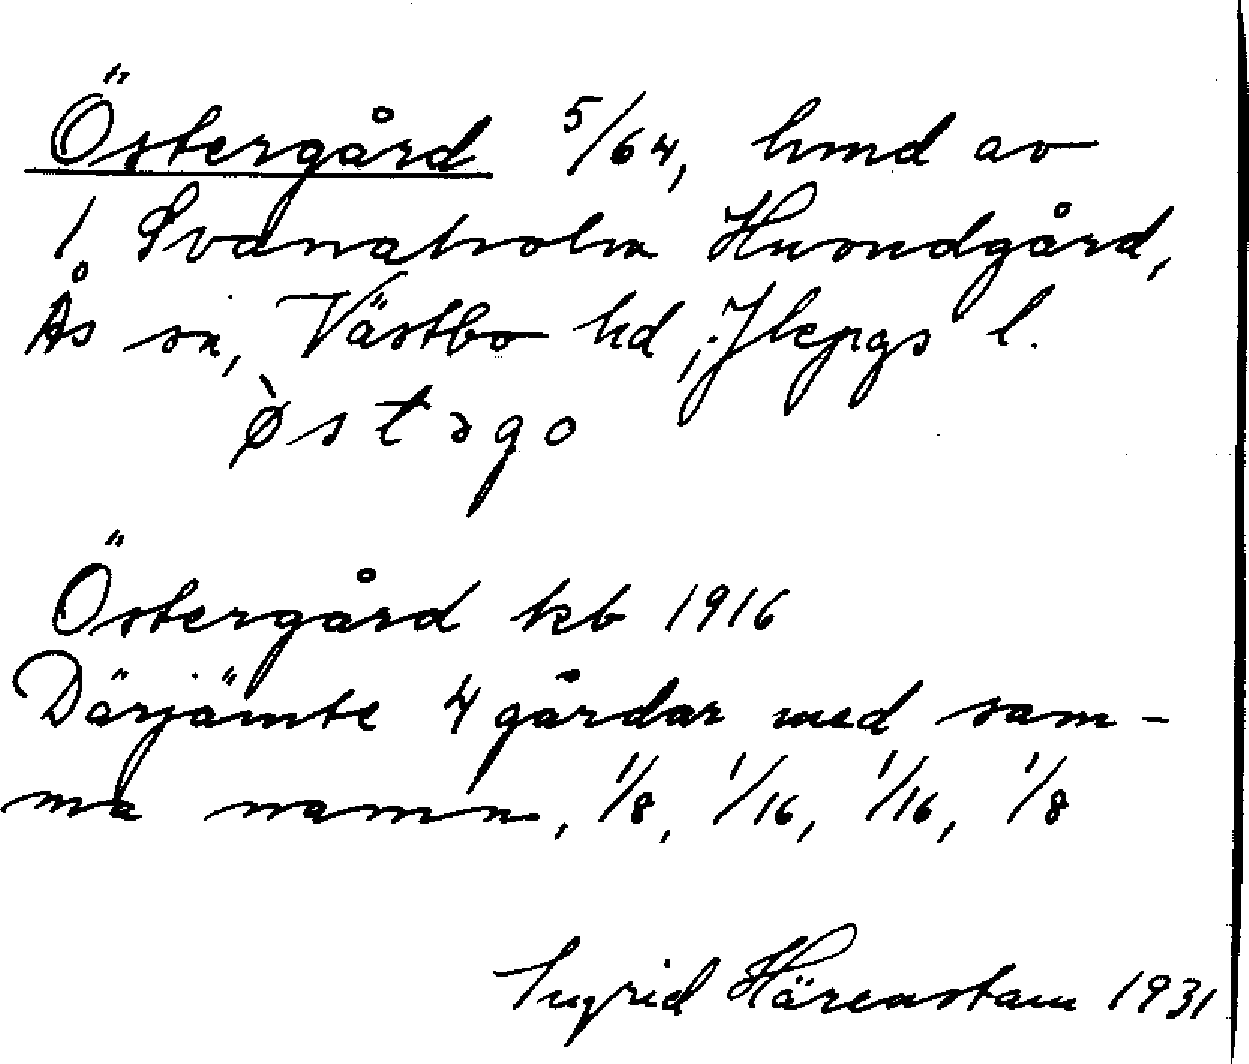 Östergård 5/64, hmd av
1 Svanaholm Huvudgård,
Ås sn, Västbo hd, Jkpgs l.
ø̀stəgo
Östergård kb 1916
Därjämte 4 gårdar med sam-
ma namn, 1/8, 1/16, 1/16, 1/8
Ingrid Härenstam 1931